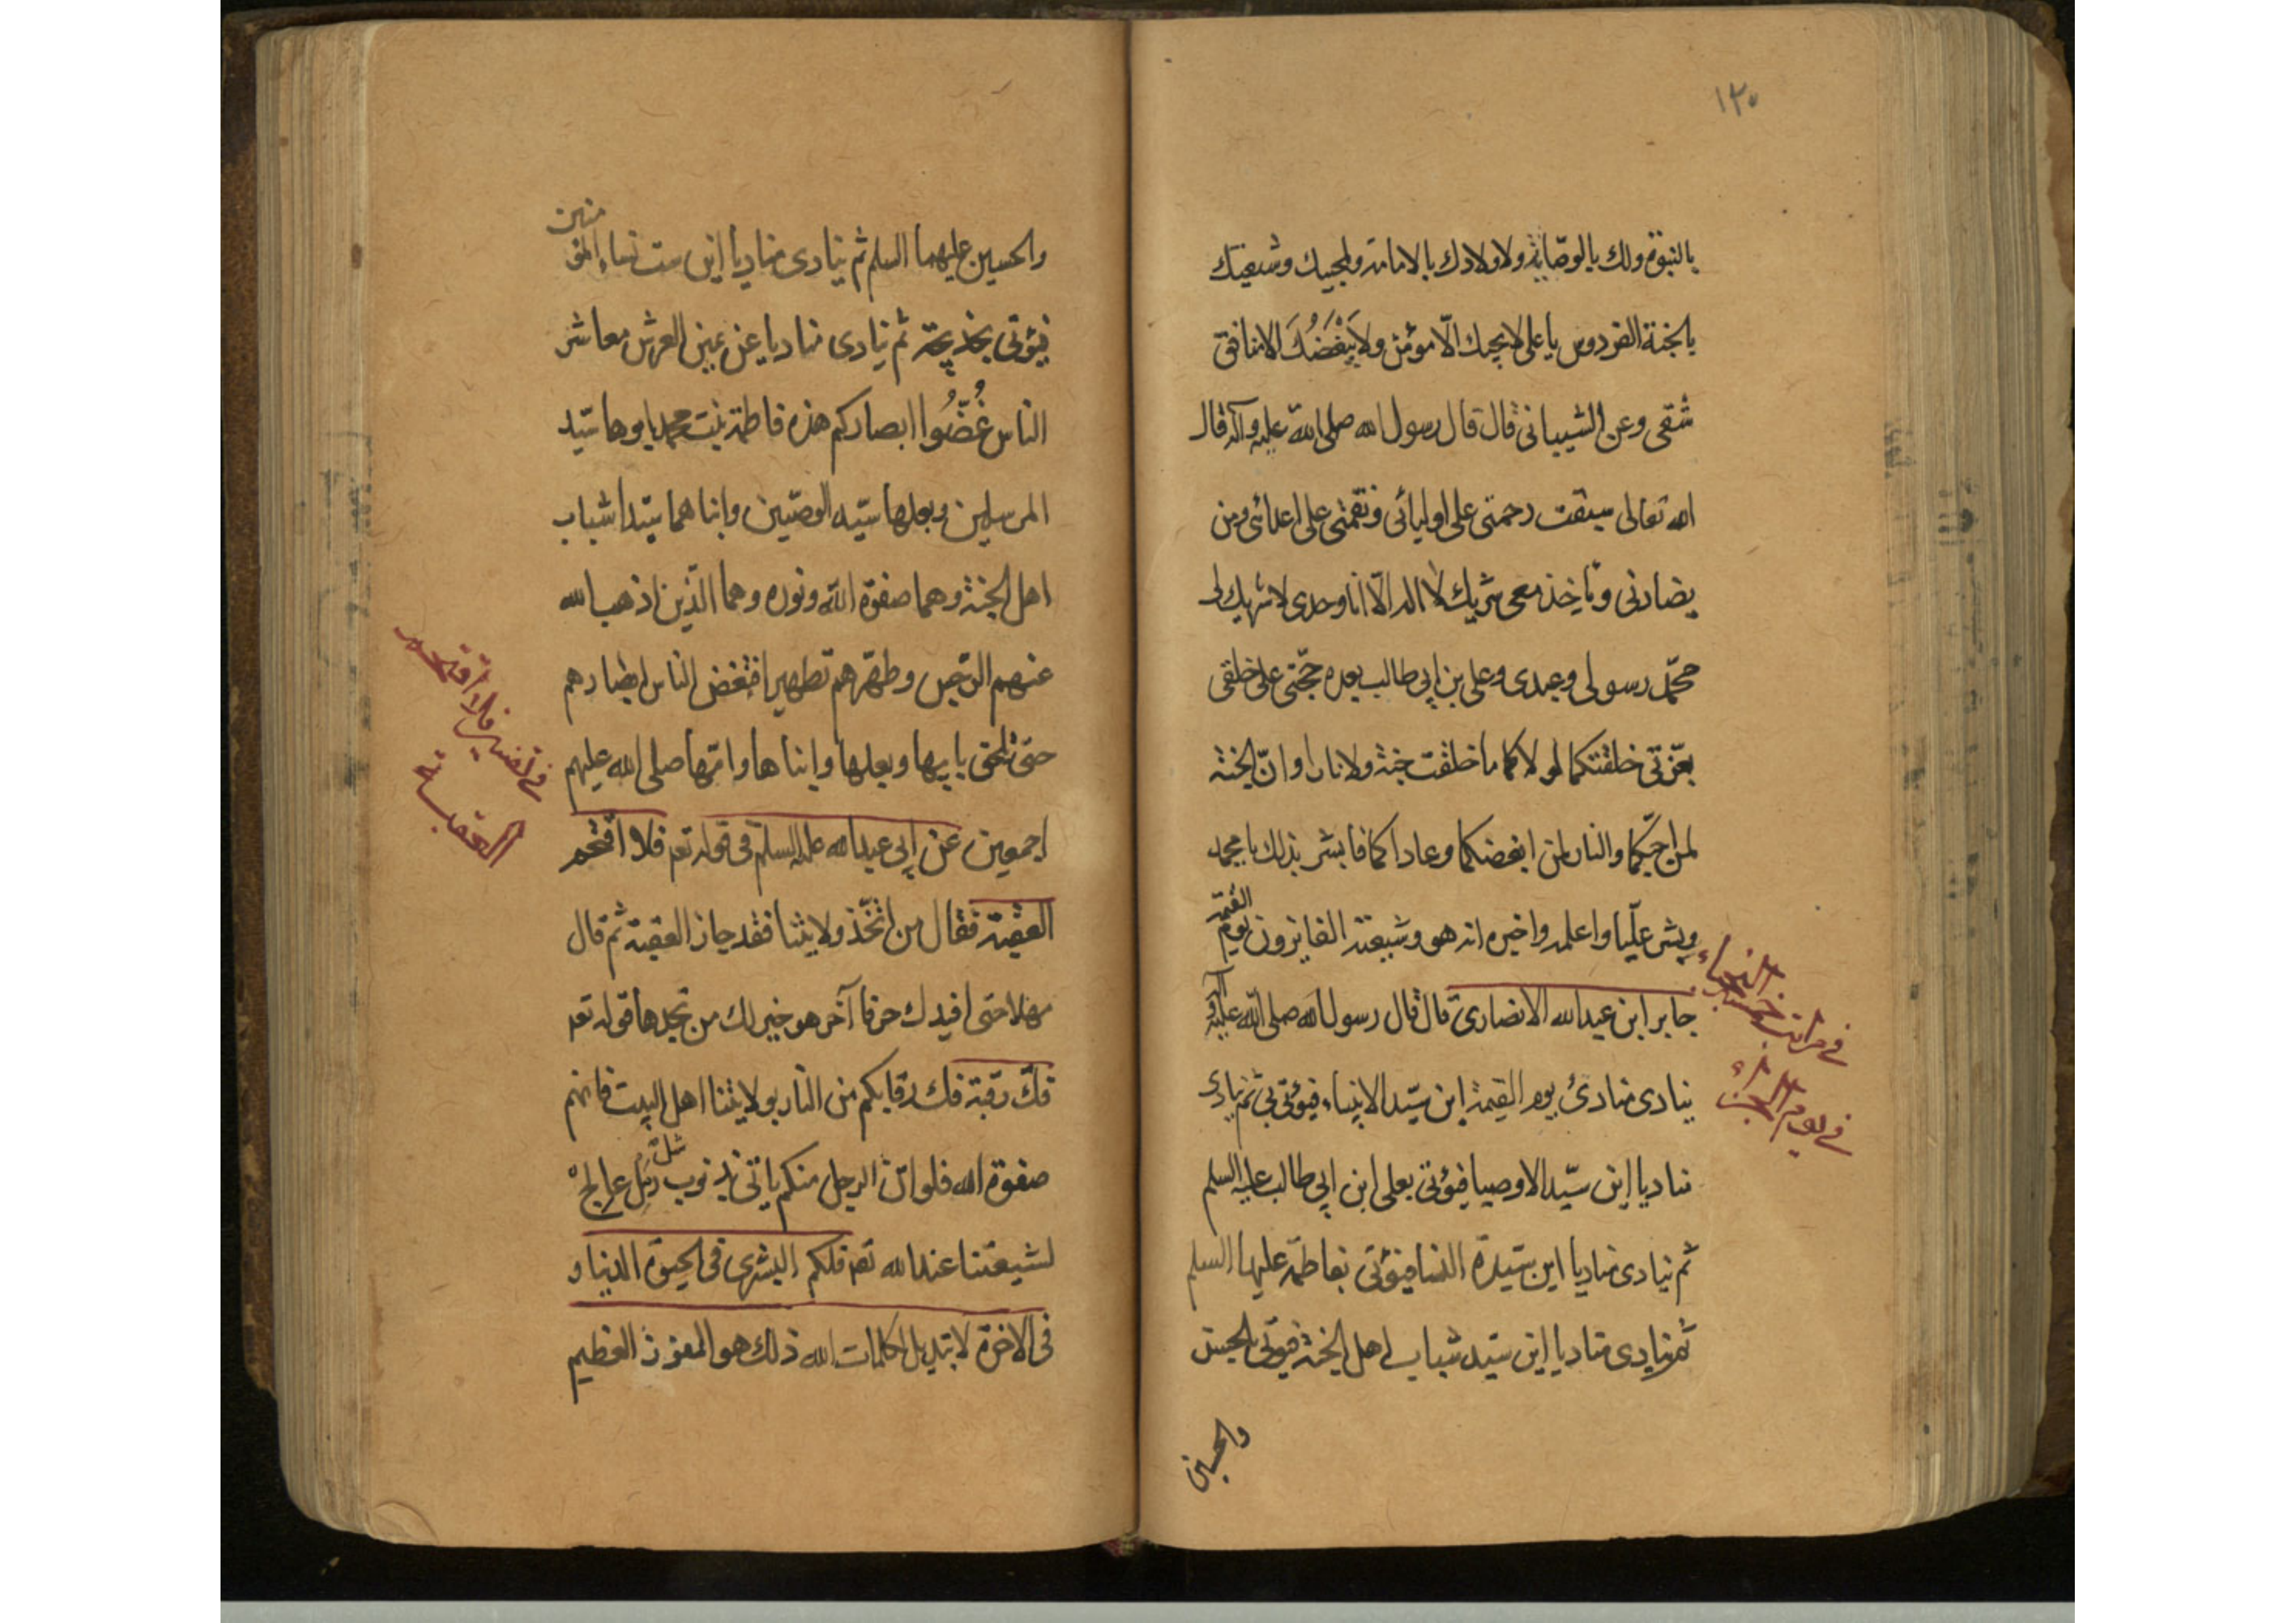 ١٣٠
بالنبوّة ولك بالوصّاية ولاولادك بالامامة ولمحبيك وشيعتك
بالجنة الفردوس يا على لا يحبك الّا مومن ولا يَبْغَضُكَ الا منافق
شقى وعن الشيبانى قال قال رسول الله صلى الله عليه وآله قال
الله تعالى سبقت رحمتى على اوليائى ونقمتى على اعدائى ومن
يضادنى وياخذ معى شريك لا اله الّا انا وحدى لا شريك لى
محمّد رسولى وعبدى وعلى بن ابى طالب بعده حجّتى على خلقى
بعزتى خلقتكما لولاكما ما خلقت جنة ولا نارا وانّ الجنة
لمن احبّكما والنار لمن ابغضكما وعاداكما فابشر بذلك يا محمد
وبشر عليّا واعلمه واخبره انه هو وشيعته الفايزون يوم القيمة
جابر ابن عبدالله الانصارى قال قال رسول الله صلى الله عليه وآله
ينادى منادى يوم القيمة اين سيّد الانبياء فيؤتى بى ثم ينادى
مناديا اين سيّد الاوصيا فيؤتى بعلى ابن ابى طالب عليه السلم
ثم ينادى مناديا اين سيّدة النسا فيؤتى بفاطمة عليها السلم
ثم ينادى مناديا اين سيّد شباب اهل الجنة فيؤتى بالحسن
والحسين
فى مراتب خمسة النجباء
فى يوم الجزاء
والحسين عليهما السلم ثم ينادى مناديا اين ست نساء المؤمنين
فيؤتى بخديجة ثم ينادى مناديا عن يمين العرش معاشر
الناس غُضُّوا ابصاركم هذه فاطمة بنت محمد ابوها سيّد
المرسلين وبعلها سيّد الوصيّين وابناهما سيّدا شباب
اهل الجنة وهما صفوة الله ونوره وهما الّذين اذهب الله
عنهم الرّجس وطهّرهم تطهيرا فتغض الناس ابصارهم
حتى تلحق بابيها وبعلها وابناها وامّها صلى الله عليهم
اجمعين عن ابى عبدالله عليه السلم فى قوله تعه فلا اقتحم
العقبة فقال من اتّخذ ولايتنا فقد جاز العقبة ثم قال
مهلا حتى افيدك حرفا آخر هو خير لك من تجدها قوله تعه
فكّ رقبة فك رقابكم من النار بولايتنا اهل البيت فانهم
صفوة الله فلو انّ الرجل منكم ياتى بذنوب مثل رمل عالج
لشيعتنا عند الله تعه فلكم البشرى فى الحيوة الدنيا و
فى الاخرة لا تبديل لكلمات الله ذلك هو الفوز العظيم
فى تفسير فلا اقتحم
العقبة